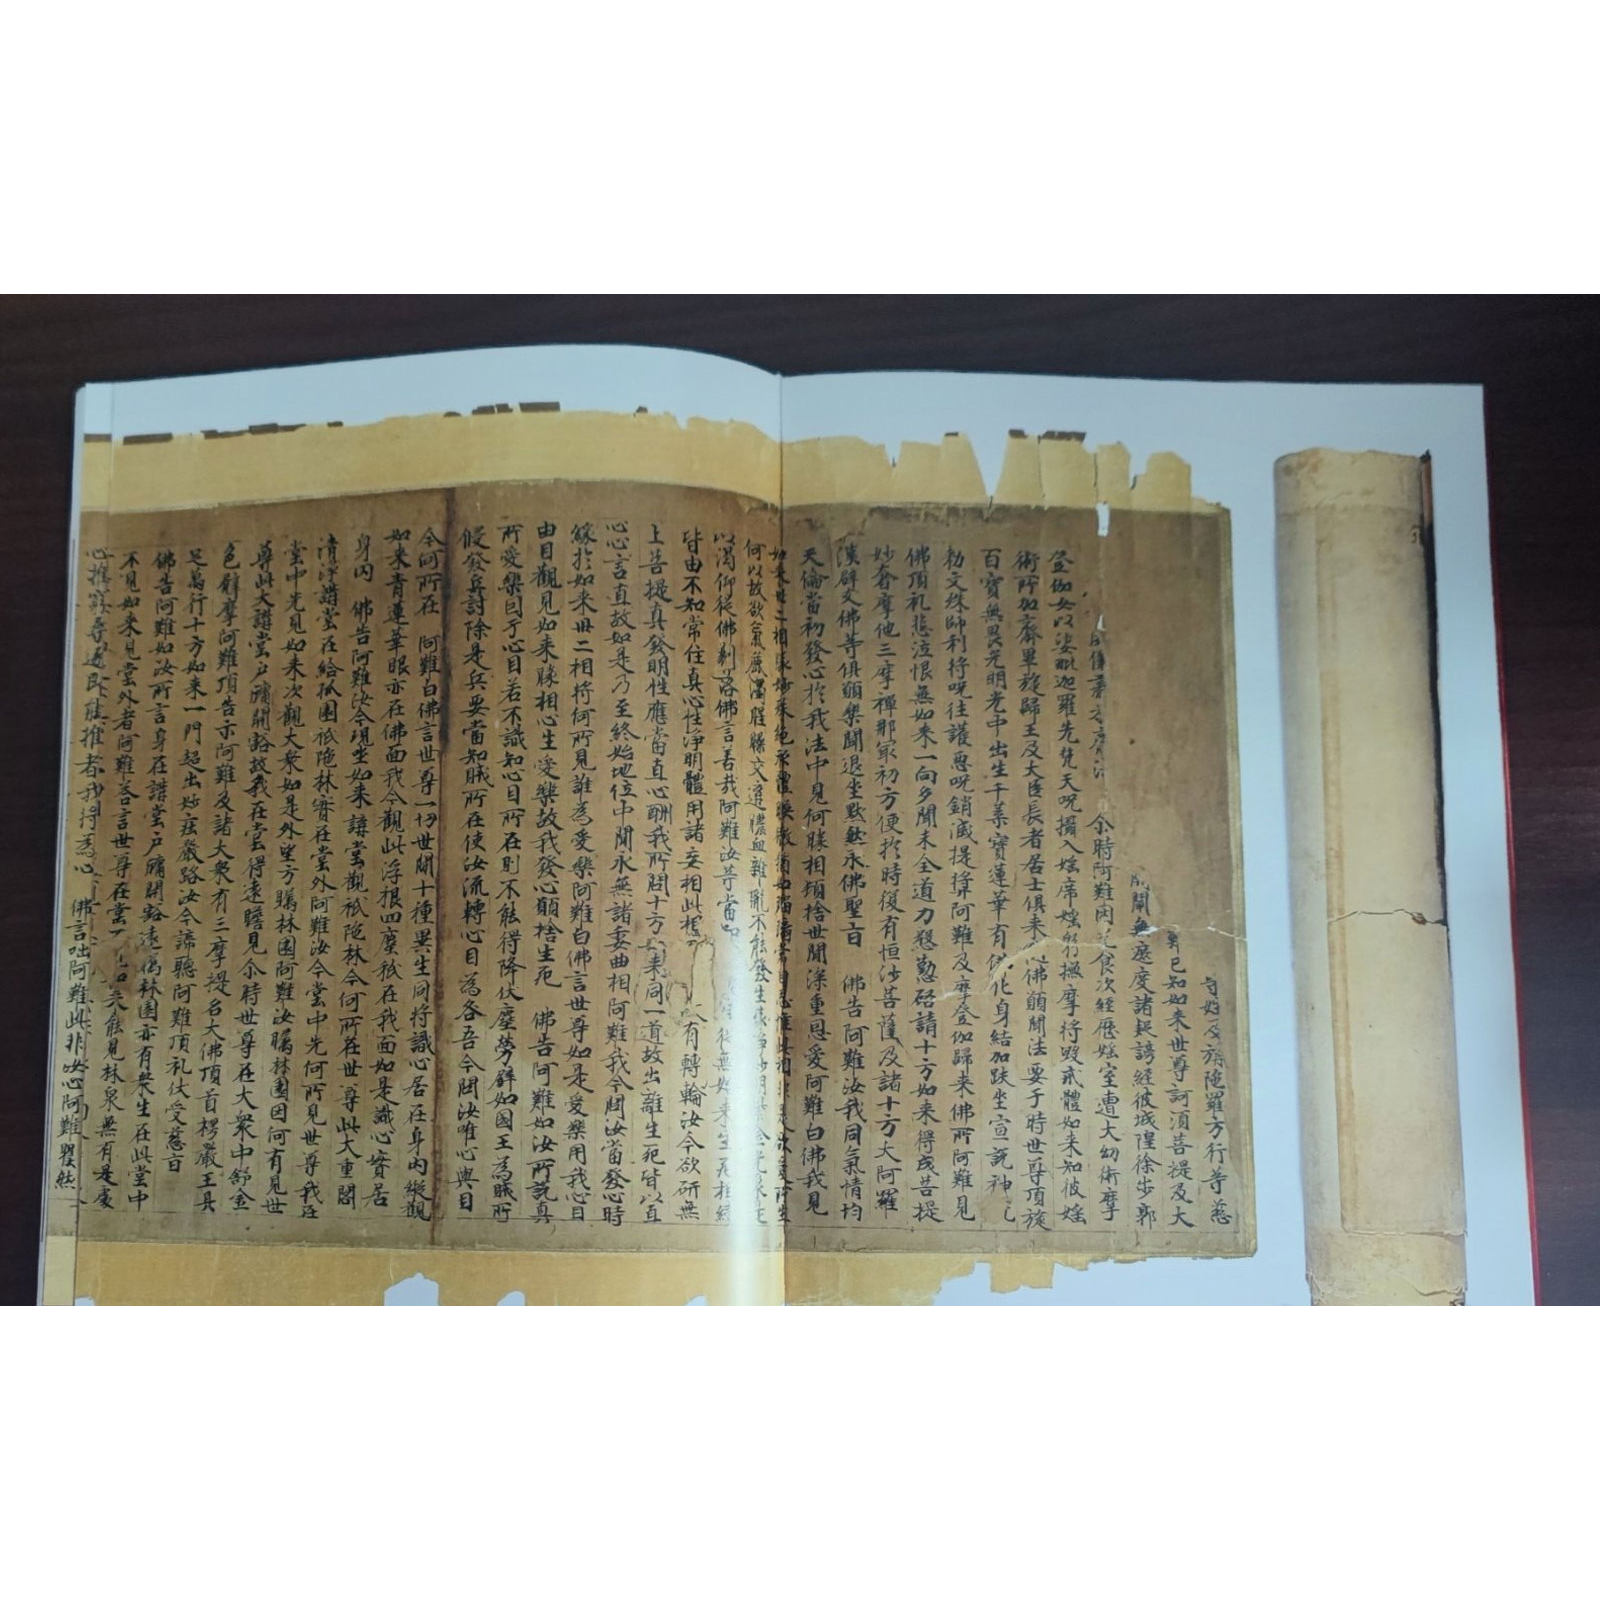 姓及旃陁羅方行等慈
已知如来世尊訶須菩提及大
開闡無遮度諸疑謗經彼城隍徐步郭
尒時阿難因乞食次經歷婬室遭大幻術摩
登伽女以娑毗迦羅先梵天呪攝入婬席婬躬撫摩將毀戒體如来知彼婬
術所加齋畢旋歸王及大臣長者居士俱来佛願聞法要于時世尊頂放
百寶無畏光明光中出生千葉寶蓮華有佛化身結加趺坐宣說神
勑文殊師利將呪往護惡呪銷滅提奬阿難及摩登伽歸来佛所阿難見
佛頂礼悲泣恨無始来一向多聞未全道力慇懃啓請十方如来得成菩提
妙奢摩他三摩禪那最初方便於時復有恒沙菩薩及諸十方大阿羅
漢辟支佛等俱願樂聞退坐默然承佛聖旨 佛告阿難汝我同氣情均
天倫當初發心於我法中見何勝相頓捨世間深重恩愛阿難白佛我見
如来卅二相勝妙殊絕形體映徹猶如瑠璃常自思惟此相非是欲愛所生
何以故欲氣麤濁腥臊交遘膿血雜亂不能發生勝淨妙明
以渴仰從佛剃落佛言善哉阿難汝等當 從無始来生死相續
皆由不知常住真心性淨明體用諸妄相此想 有轉輪汝今欲研無
上菩提真發明性應當直心酬我所問十方如来同一道故出離生死皆以直
心心言直故如是乃至終始地位中間永無諸委曲相阿難我今問汝當發心時
緣於如来卅二相將何所見誰為愛樂阿難白佛言世尊如是愛樂用我心目
由目觀見如来勝相心生愛樂故我發心願捨生死 佛告阿難如汝所說真
所愛樂因于心目若不識知心目所在則不能得降伏塵勞辟如國王為賊所
侵發兵討除是兵要當知賊所在使汝流轉心目為咎吾今問汝唯心與目
今何所在 阿難白佛言世尊一切世間十種異生同將識心居在身內縱觀
如来青蓮華眼亦在佛面我今觀此浮根四塵祇在我面如是識心實居
身內 佛告阿難汝今現坐如来講堂觀祇陁林今何所在世尊此大重閣
清淨講堂在給孤園祇陁林實在堂外阿難汝今堂中先何所見世尊我在
堂中先見如来次觀大衆如是外望方矚林園阿難汝矚林園因何有見世
尊此大講堂戶牖開豁故我在堂得遠瞻見尒時世尊在大衆中舒金
色臂摩阿難頂告示阿難及諸大衆有三摩提名大佛頂首楞嚴王具
足萬行十方如来一門超出妙莊嚴路汝今諦聽阿難頂礼伏受慈旨
佛告阿難如汝所言身在講堂戶牖開豁遠矚林園亦有衆生在此堂中
不見如来見堂外者阿難荅言世尊在堂 能見林泉無有是處
心推窮尋逐即能推者我將為心 佛言咄阿難此非汝心阿難矍然